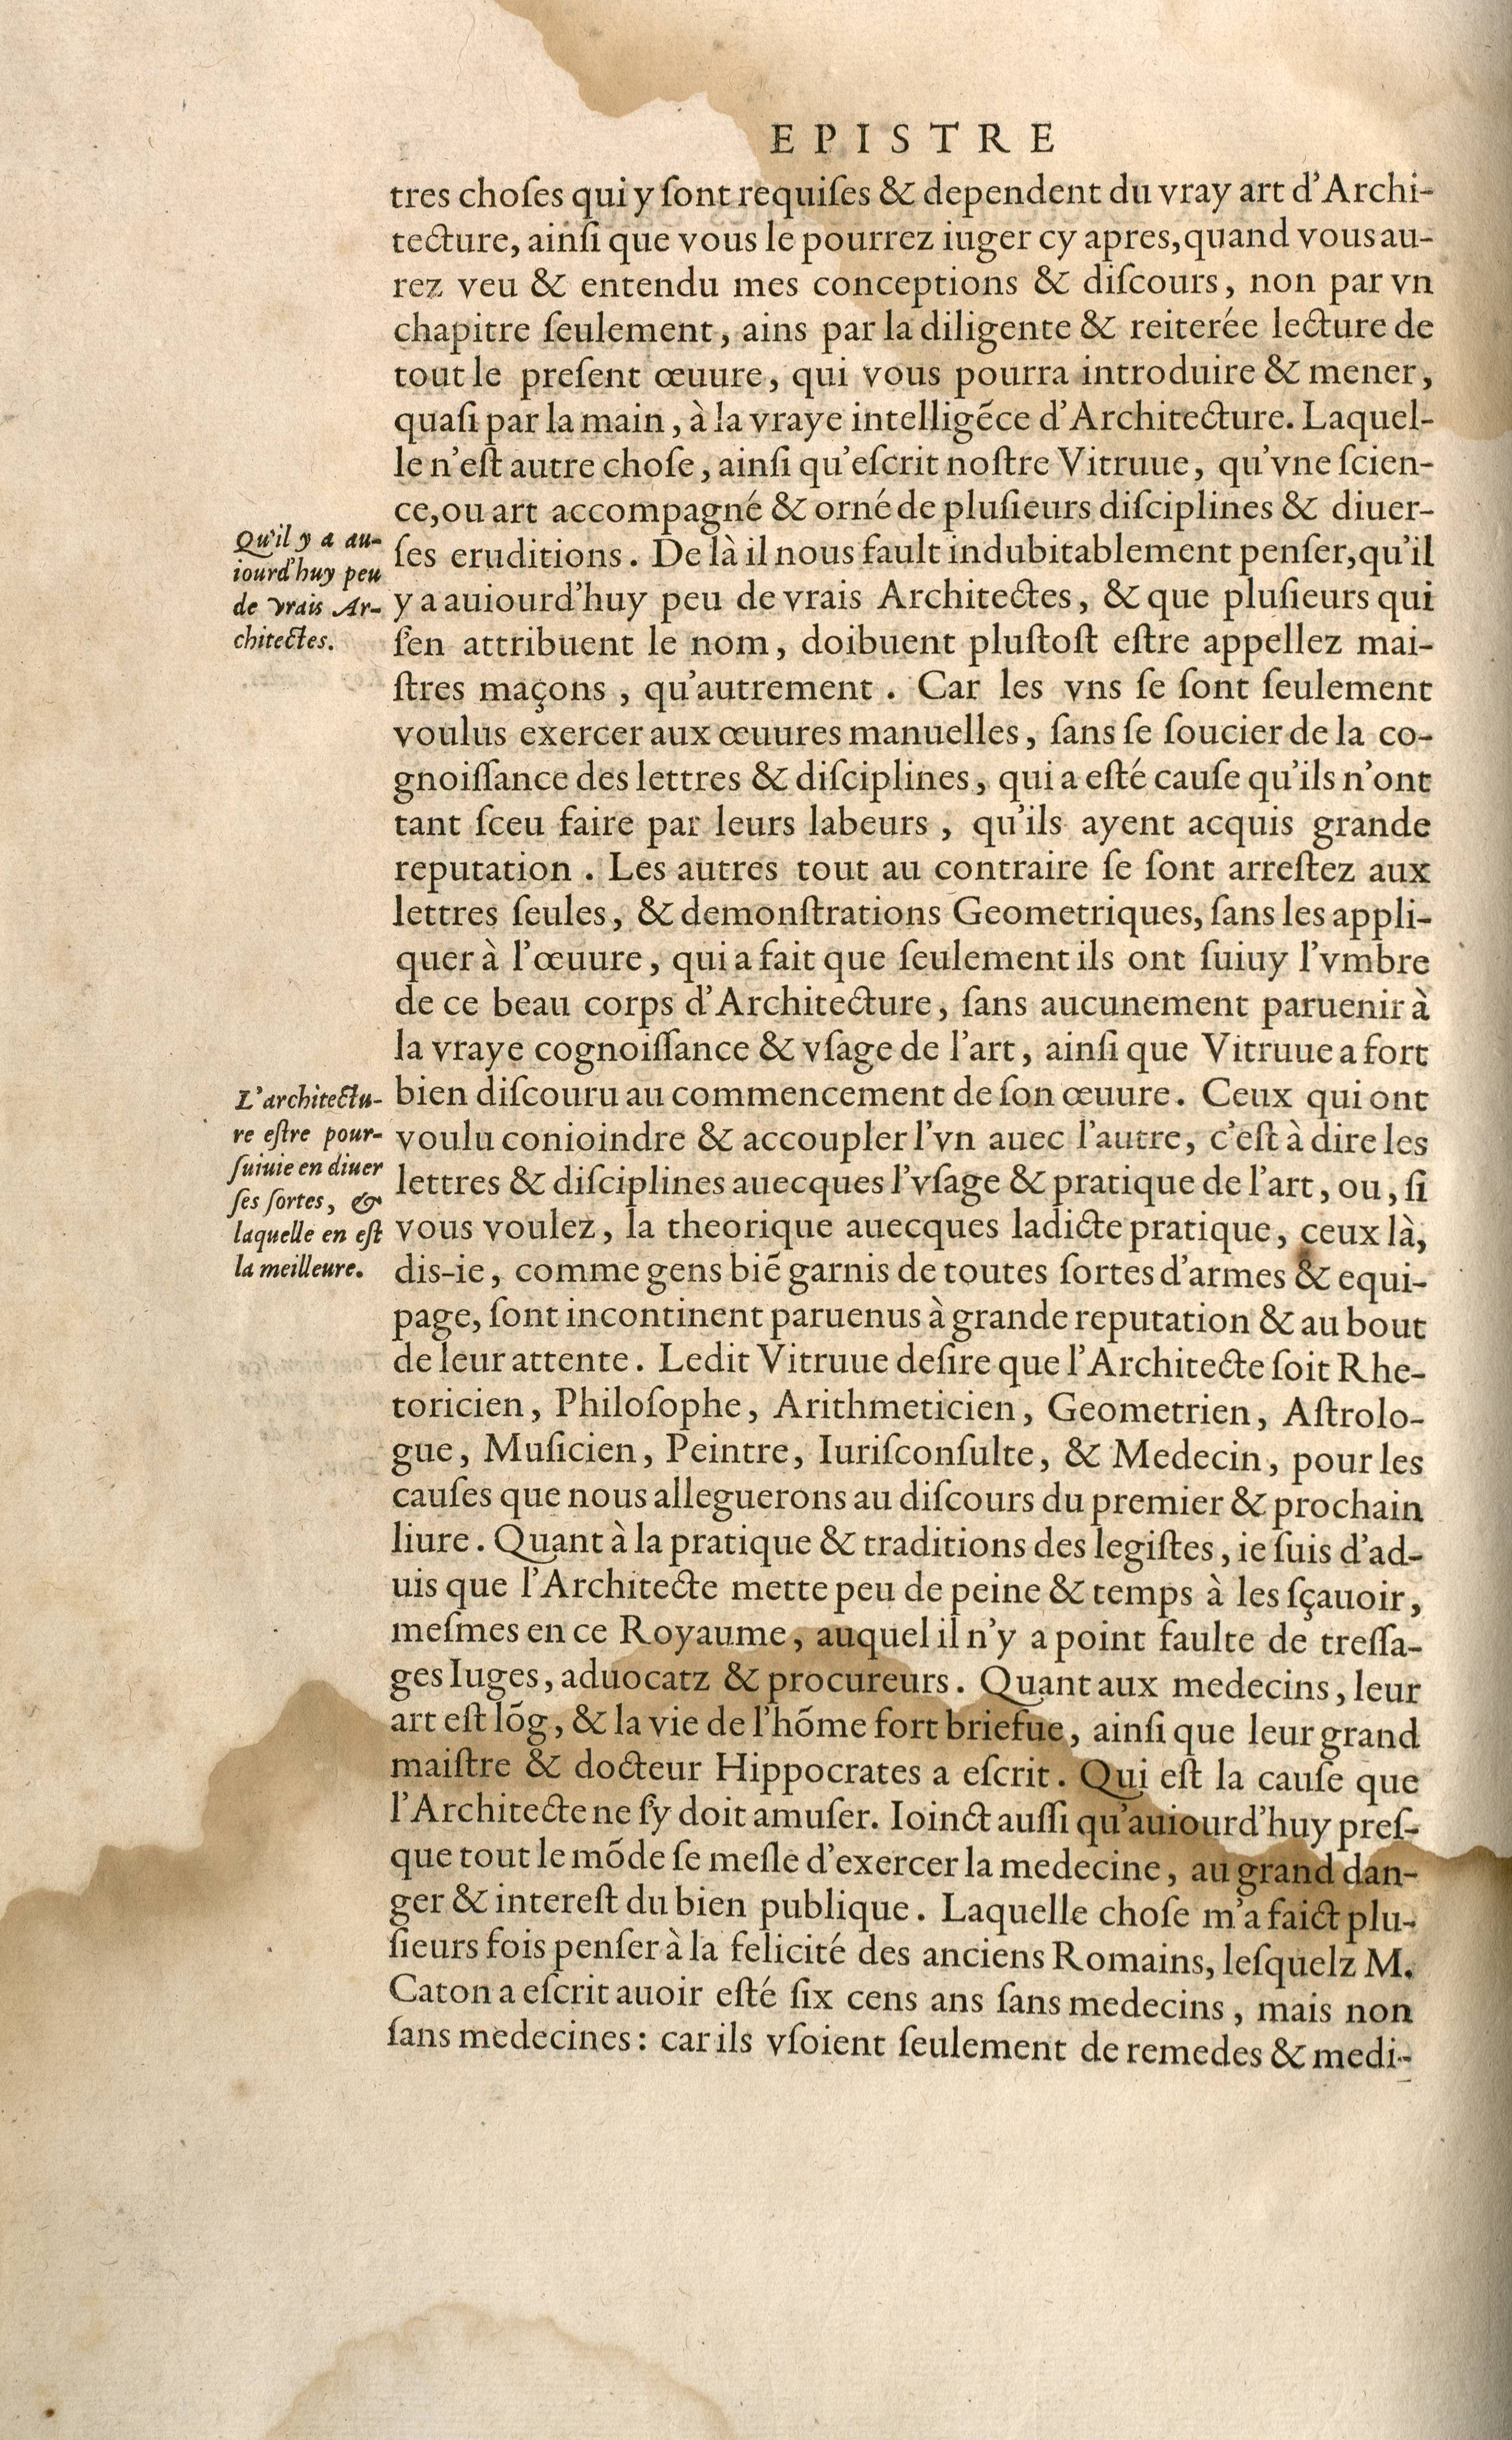 EPISTRE
tres choſes qui y ſont requiſes & dependent du vray art d'Archi-
tecture, ainſi que vous le pourrez iuger cy apres, quand vous au-
rez veu & entendu mes conceptions & diſcours, non par vn
chapitre ſeulement, ains par la diligente & reiterée lecture de
tout le preſent œuure, qui vous pourra introduire & mener,
quaſi par la main, à la vraye intelligẽce d'Architecture. Laquel-
le n'eſt autre choſe, ainſi qu'eſcrit noſtre Vitruue, qu'vne ſcien-
ce, ou art accompagné & orné de pluſieurs diſciplines & diuer-
ſes eruditions. De là il nous fault indubitablement penſer, qu'il
y a auiourd'huy peu de vrais Architectes, & que pluſieurs qui
ſ'en attribuent le nom, doibuent pluſtoſt eſtre appellez mai-
ſtres maçons, qu'autrement. Car les vns ſe ſont ſeulement
voulus exercer aux œuures manuelles, ſans ſe ſoucier de la co-
gnoiſſance des lettres & diſciplines, qui a eſté cauſe qu'ils n'ont
tant ſceu faire par leurs labeurs, qu'ils ayent acquis grande
reputation. Les autres tout au contraire ſe ſont arreſtez aux
lettres ſeules, & demonſtrations Geometriques, ſans les appli-
quer à l'œuure, qui a fait que ſeulement ils ont ſuiuy l'vmbre
de ce beau corps d'Architecture, ſans aucunement paruenir à
la vraye cognoiſſance & vſage de l'art, ainſi que Vitruue a fort
bien diſcouru au commencement de ſon œuure. Ceux qui ont
voulu conioindre & accoupler l'vn auec l'autre, c'eſt à dire les
lettres & diſciplines auecques l'vſage & pratique de l'art, ou, ſi
vous voulez, la theorique auecques ladicte pratique, ceux là,
dis-ie, comme gens biẽ garnis de toutes ſortes d'armes & equi-
page, ſont incontinent paruenus à grande reputation & au bout
de leur attente. Ledit Vitruue deſire que l'Architecte ſoit Rhe-
toricien, Philoſophe, Arithmeticien, Geometrien, Aſtrolo-
gue, Muſicien, Peintre, Iuriſconſulte, & Medecin, pour les
cauſes que nous alleguerons au diſcours du premier & prochain
liure. Quant à la pratique & traditions des legiſtes, ie ſuis d'ad-
uis que l'Architecte mette peu de peine & temps à les ſçauoir,
meſmes en ce Royaume, auquel il n'y a point faulte de treſſa-
ges Iuges, aduocatz & procureurs. Quant aux medecins, leur
art eſt lõg, & la vie de l'hõme fort briefue, ainſi que leur grand
maiſtre & docteur Hippocrates a eſcrit. Qui eſt la cauſe que
l'Architecte ne ſ'y doit amuſer. Ioinct auſſi qu'auiourd'huy preſ-
que tout le mõde ſe meſle d'exercer la medecine, au grand dan-
ger & intereſt du bien publique. Laquelle choſe m'a faict plu-
ſieurs fois penſer à la felicité des anciens Romains, leſquelz M.
Caton a eſcrit auoir eſté ſix cens ans ſans medecins, mais non
ſans medecines: car ils vſoient ſeulement de remedes & medi-
Qu'il y a au-
iourd'huy peu
de vrais Ar-
chitectes.
L'architectu-
re eſtre pour-
ſuiuie en diuer
ſes ſortes, &
laquelle en eſt
la meilleure.